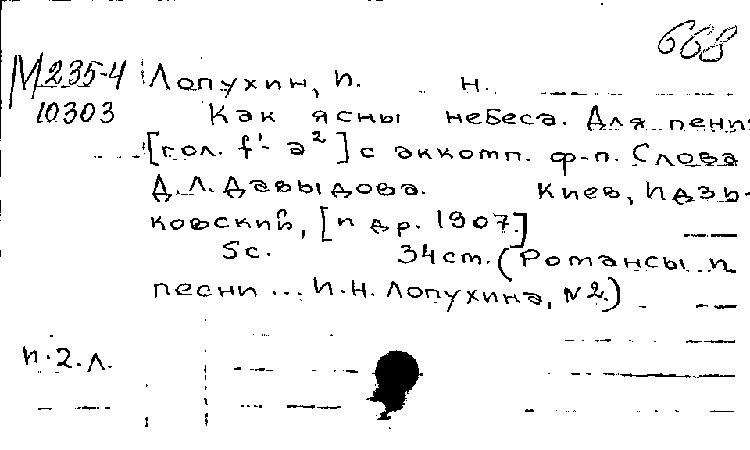 668
М 235-4 Лопухин, И. Н.
10303 Как ясны небеса. Для пения
[гол. f¹- a²] с аккомп. ф-п. Слова
Д.Л. Давыдова. Киев, Идзи-
ковский, [и др. 1907.]
5с. 34 ст. (Романсы и
песни ... И.Н. Лопухина, №2.)
п.2.л.